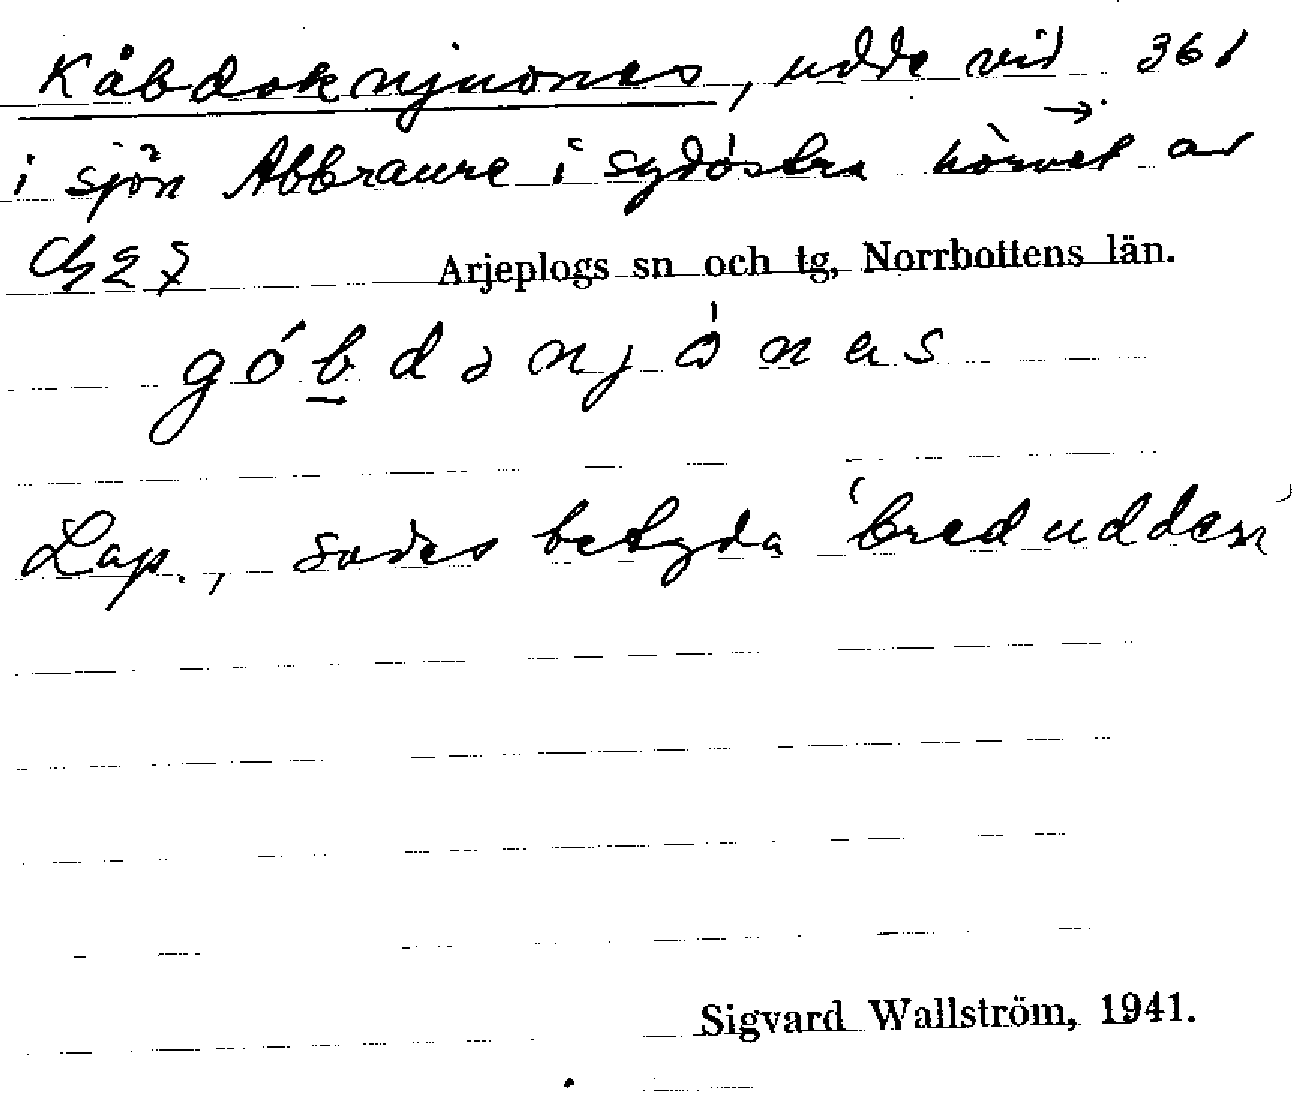 Kåbdoknjuones, udde vid 361
i sjön Abbraure i sydöstra hörnet av
27 Arjeplogs sn och tg, Norrbottens län.
góbdənjɔ̍nas
Lap., sades betyda 'bredudden'
Sigvard Wallström, 1941.